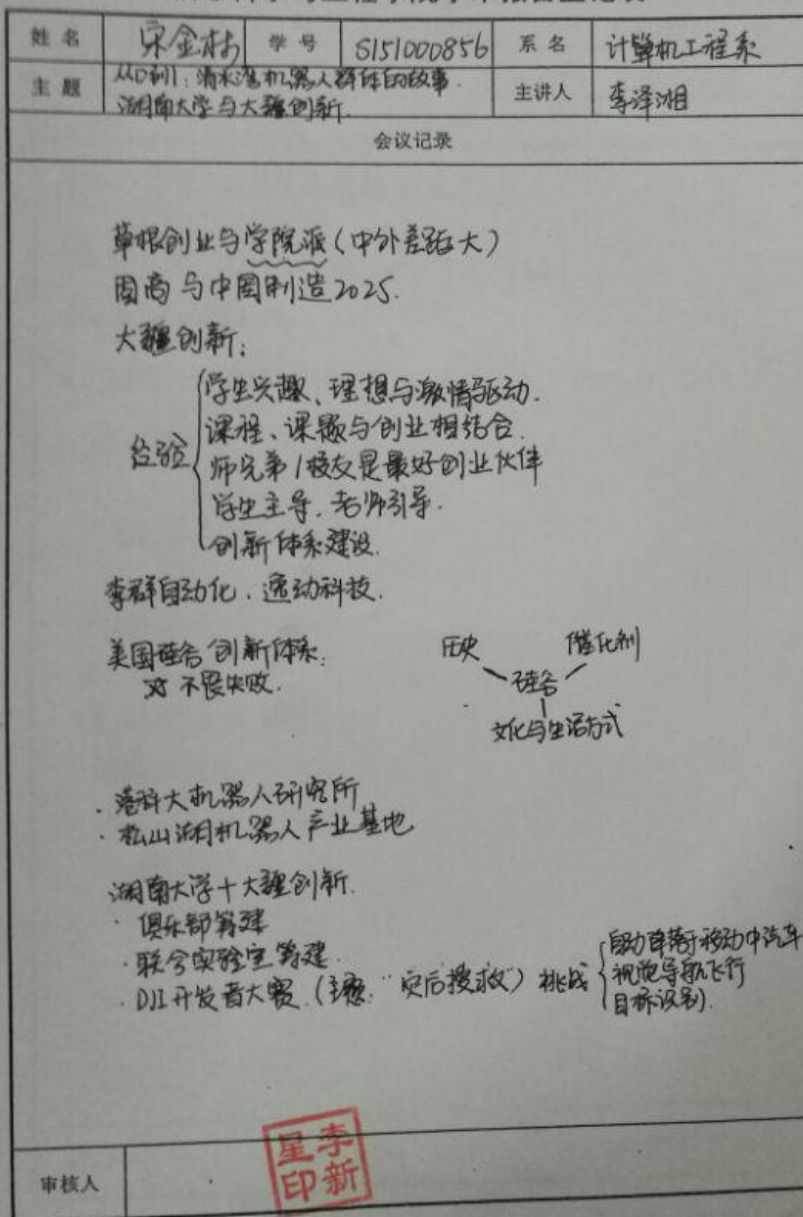 姓名 宋金树 学号 S151000856 系名 计算机工程系
主题 从0到1:清水湾机器人群体的故事.
湖南大学与大疆创新.
主讲人 李泽湘
会议记录
草根创业与学院派(中外差距大)
固高与中国制造2025.
大疆创新:
经验
学生兴趣、理想与激情驱动.
课程、课题与创业相结合.
师兄弟/校友是最好创业伙伴
学生主导.老师引导.
创新体系建设.
李群自动化.逸动科技.
美国硅谷创新体系:
不畏失败.
历史 催化剂
硅谷
文化与生活方式
·港科大机器人研究所
·松山湖机器人产业基地
湖南大学+大疆创新.
·俱乐部筹建
·联合实验室筹建.
·DJI开发者大赛.(主题:"灾后搜救")挑战
自动降落于移动中汽车
视觉导航飞行
目标识别.
审核人
李新星印